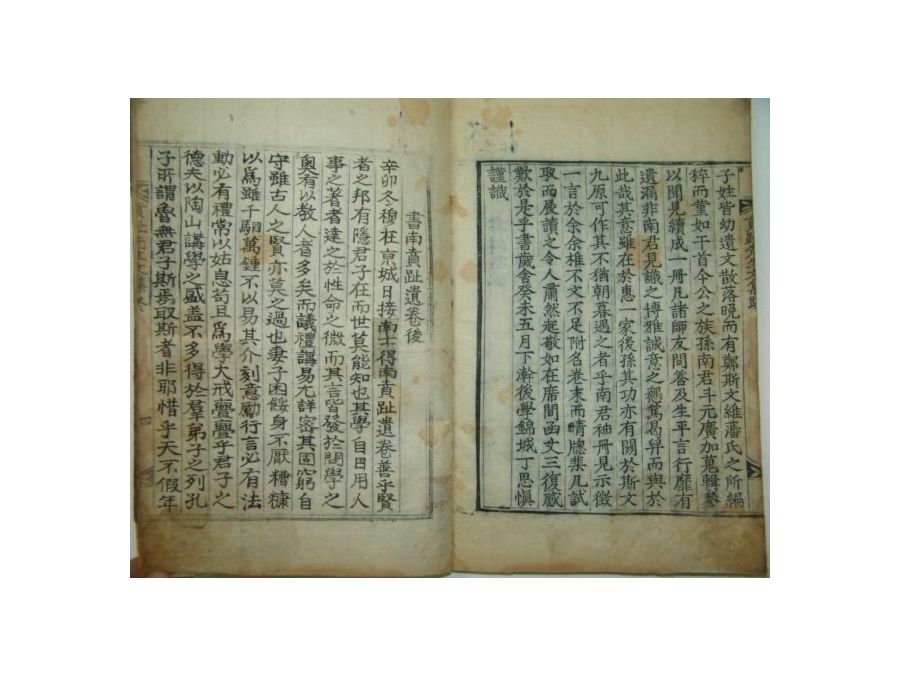 子姓皆幼遺文散落晩而有鄭斯文維藩氏之所編
稡而菫如干首今公之族孫南君斗元廣加蒐輯參
以聞見續成一冊凡諸師友問答及生平言行靡有
遺漏非南君見識之博雅誠意之懇篤曷與於
此哉其意雖在於惠一家後孫其功亦有關於斯文
九原可作其不猶朝暮遇之者乎南君袖冊見示徵
一言於余余椎不文不足附名卷末而晴牕棐几試
取而展讀之令人肅然起敬如在席間函丈三復感
歎於是乎書歲舍癸未五月下澣後學錦城丁思愼
謹識
書南賁趾遺卷後
辛卯冬穆在京城日接南士得南賁趾遺卷善乎賢
者之邦有隱君子在而世莫能知也其學自日用人
事之著者達之於性命之微而其言皆發於問學之
奧有以教人者多矣而議禮講易尤詳密其固窮自
守雖古人之賢亦莫之過也妻子困餒身不厭糟糠
以爲雖千駟萬鍾不以易其介刻意勵行言必有法
動必有禮常以姑息苟且爲學大戒亹亹乎君子之
德夫以陶山講學之盛盖不多得於羣弟子之列孔
子所謂魯無君子斯焉取斯者非耶惜乎天不假年
四